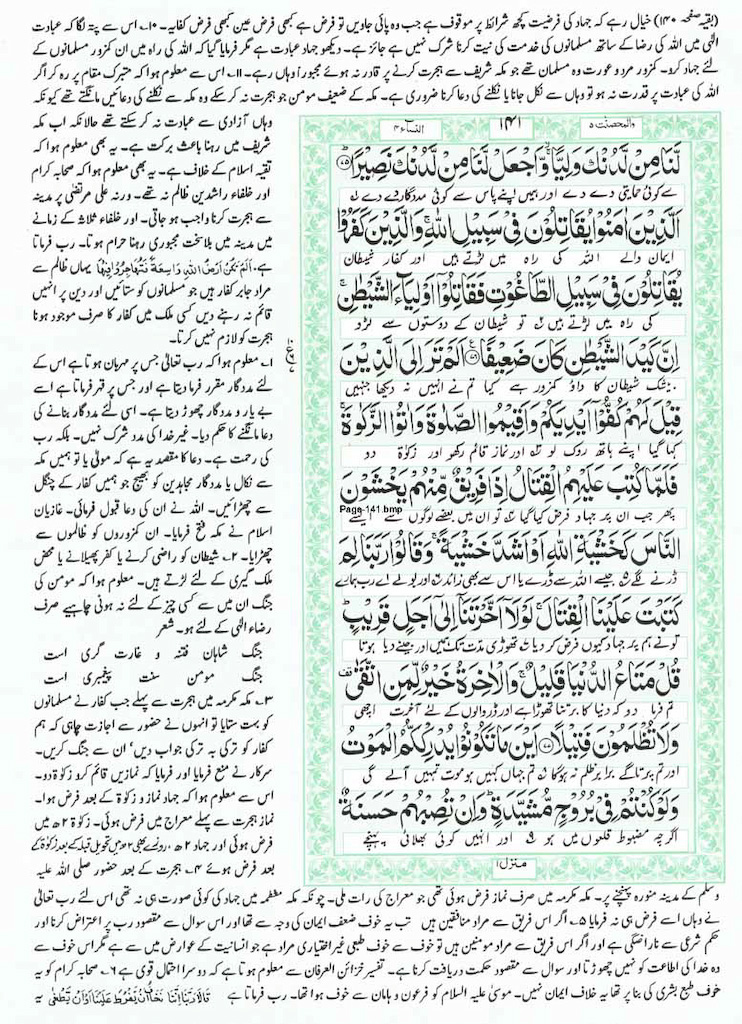 (بقیہ صفحہ ۱۴۰) خیال رہے کہ جہاد کی فرضیت کچھ شرائط پر موقوف ہے جب وہ پائی جاویں تو فرض ہے کبھی فرض عین کبھی فرض کفایہ۔ ۱۰؂ اس سے پتہ لگا کہ عبادت
الٰہی میں اللہ کی رضا کے ساتھ مسلمانوں کی خدمت کی نیت کرنا شرک نہیں ہے جائز ہے۔ دیکھو جہاد عبادت ہے مگر فرمایا گیا کہ اللہ کی راہ میں ان کمزور مسلمانوں کے
لئے جہاد کرو۔ کمزور مرد و عورت وہ مسلمان تھے جو مکہ شریف سے ہجرت کرنے پر قادر نہ ہوئے مجبوراً وہاں رہے۔ ۱۱؂ اس سے معلوم ہوا کہ متبرک مقام پر رہ کر اگر
اللہ کی عبادت پر قدرت نہ ہو تو وہاں سے نکل جانا یا نکلنے کی دعا کرنا ضروری ہے۔ مکہ کے ضعیف مومن جو ہجرت نہ کر سکے وہ مکہ سے نکلنے کی دعائیں مانگتے تھے کیونکہ
وہاں آزادی سے عبادت نہ کر سکتے تھے حالانکہ اب مکہ
شریف میں رہنا باعث برکت ہے۔ یہ بھی معلوم ہوا کہ
تقیہ اسلام کے خلاف ہے۔ یہ بھی معلوم ہوا کہ صحابہ کرام
اور خلفاء راشدین ظالم نہ تھے۔ ورنہ علی مرتضٰی پر مدینہ
سے ہجرت کرنا واجب ہو جاتی۔ اور خلفاء ثلاثہ کے زمانے
میں مدینہ میں بلاسخت مجبوری رہنا حرام ہوتا۔ رب فرماتا
ہے۔ اَلَمْ تَكُنْ اَرْضُ اللّٰهِ وَاسِعَةً فَتُهَاجِرُوْا فِيْهَا یہاں ظالم سے
مراد جابر کفار ہیں جو مسلمانوں کو ستائیں اور دین پر انہیں
قائم نہ رہنے دیں کسی ملک میں کفار کا صرف موجود ہونا
ہجرت کو لازم نہیں کرتا۔
۱؂ معلوم ہوا کہ رب تعالٰی جس پر مہربان ہوتا ہے اس کے
لئے مددگار مقرر فرما دیتا ہے اور جس پر قہر فرماتا ہے اسے
بے یار و مددگار چھوڑ دیتا ہے۔ اسی لئے مددگار بنانے کی
دعا مانگنے کا حکم دیا۔ غیر خدا کی مدد شرک نہیں۔ بلکہ رب
کی رحمت ہے۔ دعا کا مقصد یہ ہے کہ مولٰی یا تو ہمیں مکہ
سے نکال یا مددگار مجاہدین کو بھیج جو ہمیں کفار کے چنگل
سے چھڑائیں۔ اللہ نے ان کی دعا قبول فرمائی۔ غازیان
اسلام نے مکہ فتح فرمایا۔ ان کمزوروں کو ظالموں سے
چھڑایا۔ ۲؂ شیطان کو راضی کرنے یا کفر پھیلانے یا محض
ملک گیری کے لئے لڑتے ہیں۔ معلوم ہوا کہ مومن کی
جنگ ان میں سے کسی چیز کے لئے نہ ہونی چاہیے صرف
رضاء الٰہی کے لئے ہو۔ شعر
جنگ شاہان فتنہ و غارت گری است
جنگ مومن سنت پیغمبری است
۳؂ مکہ مکرمہ میں ہجرت سے پہلے جب کفار نے مسلمانوں
کو بہت ستایا تو انہوں نے حضور سے اجازت چاہی کہ ہم
کفار کو ترکی بہ ترکی جواب دیں' ان سے جنگ کریں۔
سرکار نے منع فرمایا اور فرمایا کہ نمازیں قائم کرو زکوٰۃ دو۔
اس سے معلوم ہوا کہ جہاد نماز و زکوٰۃ کے بعد فرض ہوا۔
نماز ہجرت سے پہلے معراج میں فرض ہوئی۔ زکوٰۃ ۲ھ میں
فرض ہوئی اور جہاد ۲ھ، روزے بھی ۲ھ میں تحویل قبلہ کے بعد زکوٰۃ کے
بعد فرض ہوئے ۴؂ ہجرت کے بعد حضور صلی اللہ علیہ
والمحصنت ۵
۱۴۱
النساء ۴
لَّنَا مِنْ لَّدُنْكَ وَلِيًّا ۙ وَّاجْعَلْ لَّنَا مِنْ لَّدُنْكَ نَصِيْرًا ۝۷۵
سے کوئی حمایتی دے دے اور ہمیں اپنے پاس سے کوئی مددگار دے دے
اَلَّذِيْنَ اٰمَنُوْا يُقَاتِلُوْنَ فِيْ سَبِيْلِ اللّٰهِ ۚ وَالَّذِيْنَ كَفَرُوْا
ایمان والے اللہ کی راہ میں لڑتے ہیں اور کفار شیطان
يُقَاتِلُوْنَ فِيْ سَبِيْلِ الطَّاغُوْتِ فَقَاتِلُوْٓا اَوْلِيَآءَ الشَّيْطٰنِ ۚ
کی راہ میں لڑتے ہیں تو شیطان کے دوستوں سے لڑو
اِنَّ كَيْدَ الشَّيْطٰنِ كَانَ ضَعِيْفًا ۝۷۶ اَلَمْ تَرَ اِلَى الَّذِيْنَ
بیشک شیطان کا داؤ کمزور ہے کیا تم نے انہیں نہ دیکھا جنہیں
قِيْلَ لَهُمْ كُفُّوْٓا اَيْدِيَكُمْ وَاَقِيْمُوا الصَّلٰوةَ وَاٰتُوا الزَّكٰوةَ ۚ
کہا گیا اپنے ہاتھ روک لو اور نماز قائم رکھو اور زکوٰۃ دو
فَلَمَّا كُتِبَ عَلَيْهِمُ الْقِتَالُ اِذَا فَرِيْقٌ مِّنْهُمْ يَخْشَوْنَ
پھر جب ان پر جہاد فرض کیا گیا تو ان میں بعضے لوگوں سے ایسے
Page-141.bmp
النَّاسَ كَخَشْيَةِ اللّٰهِ اَوْ اَشَدَّ خَشْيَةً ۚ وَقَالُوْا رَبَّنَا لِمَ
ڈرنے لگے جیسے اللہ سے ڈرے یا اس سے بھی زائد اور بولے اے رب ہمارے
كَتَبْتَ عَلَيْنَا الْقِتَالَ ۚ لَوْلَآ اَخَّرْتَنَآ اِلٰٓى اَجَلٍ قَرِيْبٍ ؕ
تو نے ہم پر جہاد کیوں فرض کر دیا تھوڑی مدت تک ہمیں اور جینے دیا ہوتا
قُلْ مَتَاعُ الدُّنْيَا قَلِيْلٌ ۚ وَالْاٰخِرَةُ خَيْرٌ لِّمَنِ اتَّقٰى
تم فرما دو کہ دنیا کا برتنا تھوڑا ہے اور ڈر والوں کے لئے آخرت اچھی
وَلَا تُظْلَمُوْنَ فَتِيْلًا ۝۷۷ اَيْنَ مَا تَكُوْنُوْا يُدْرِكْكُّمُ الْمَوْتُ
اور تم پر تاگے برابر ظلم نہ ہوگا تم جہاں کہیں ہو موت تمہیں آلے گی
وَلَوْ كُنْتُمْ فِيْ بُرُوْجٍ مُّشَيَّدَةٍ ؕ وَاِنْ تُصِبْهُمْ حَسَنَةٌ
اگرچہ مضبوط قلعوں میں ہو اور انہیں کوئی بھلائی پہنچے
منزل ۱
وسلم کے مدینہ منورہ پہنچنے پر۔ مکہ مکرمہ میں صرف نماز فرض ہوئی تھی جو معراج کی رات ملی۔ چونکہ مکہ معظمہ میں جہاد کی کوئی صورت ہی نہ تھی اس لئے رب تعالٰی
نے وہاں اسے فرض ہی نہ فرمایا ۵؂ اگر اس فریق سے مراد منافقین ہیں تب یہ خوف ضعف ایمان کی وجہ سے تھا اور اس سوال سے مقصود رب پر اعتراض کرنا اور
حکم شرعی سے ناراضگی ہے اور اگر اس فریق سے مراد مومنین ہیں تو خوف سے خوف طبعی غیر اختیاری مراد ہے جو انسانیت کے عوارض میں سے ہے مگر اس خوف سے
وہ خدا کی اطاعت کو نہیں چھوڑتا اور سوال سے مقصود حکمت دریافت کرنا ہے۔ تفسیر خزائن العرفان سے معلوم ہوتا ہے کہ دوسرا احتمال قوی ہے ۶؂ صحابہ کرام کو یہ
خوف طبع بشری کی بنا پر تھا یہ خلاف ایمان نہیں۔ موسیٰ علیہ السلام کو فرعون و ہامان سے خوف ہوا تھا۔ رب فرماتا ہے قَالَا رَبَّنَآ اِنَّنَا نَخَافُ اَنْ يَّفْرُطَ عَلَيْنَآ اَوْ اَنْ يَّطْغٰى یہ